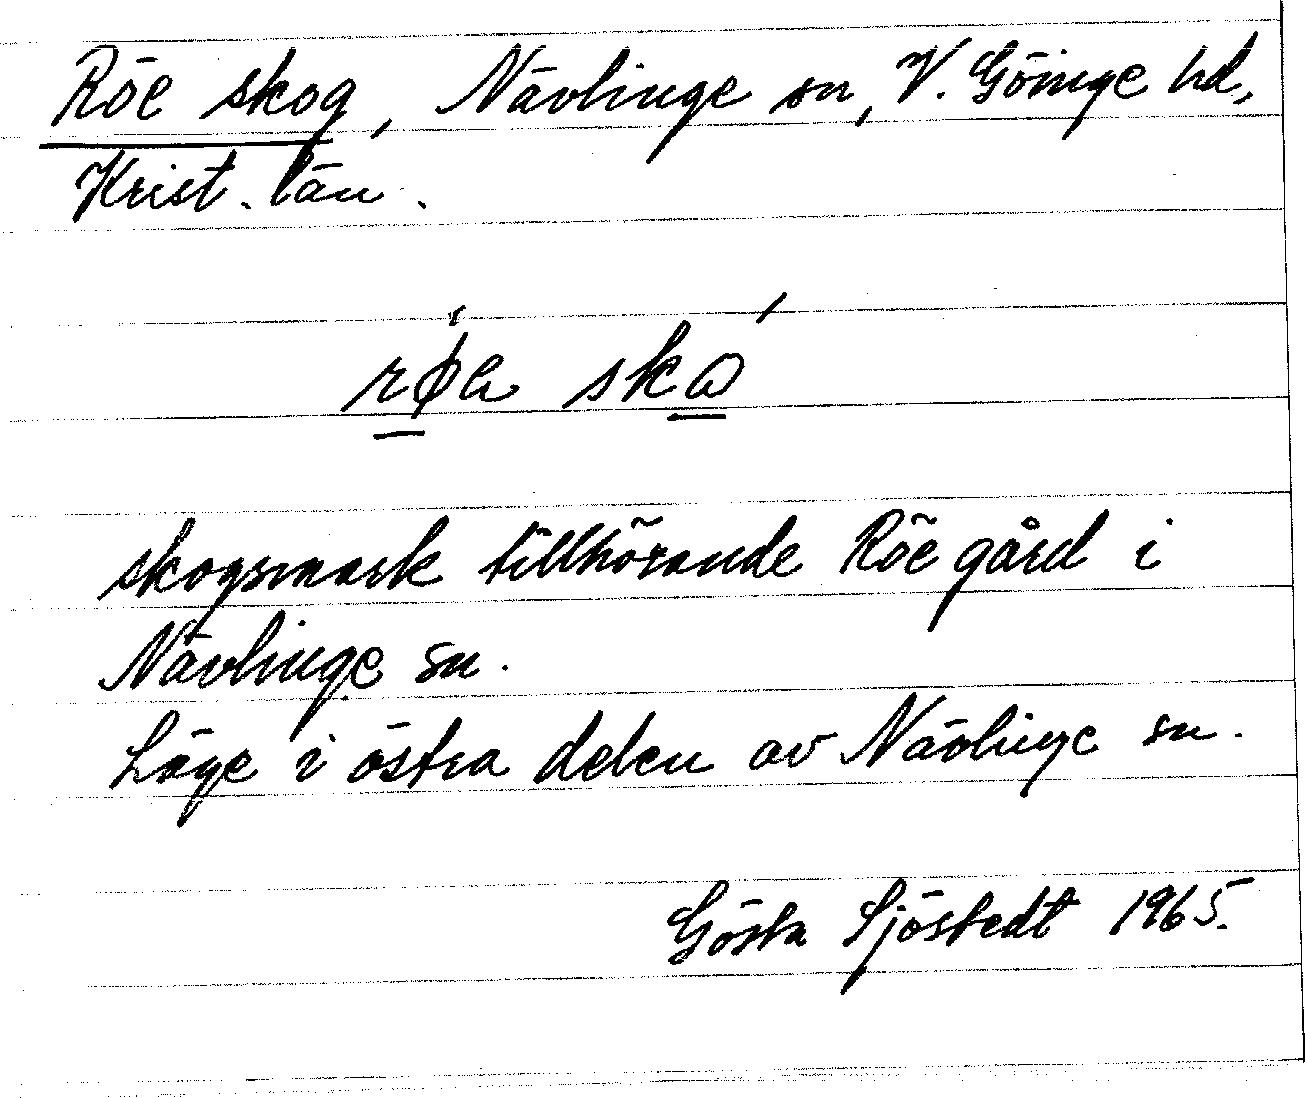 Röe skog, Nävlinge sn, V. Göinge hd,
Krist. län.
røa ska
skogsmark tillhörande Röe gård i
Nävlinge sn.
Läge i östra delen av Nävlinge sn.
Gösta Sjöstedt 1965.